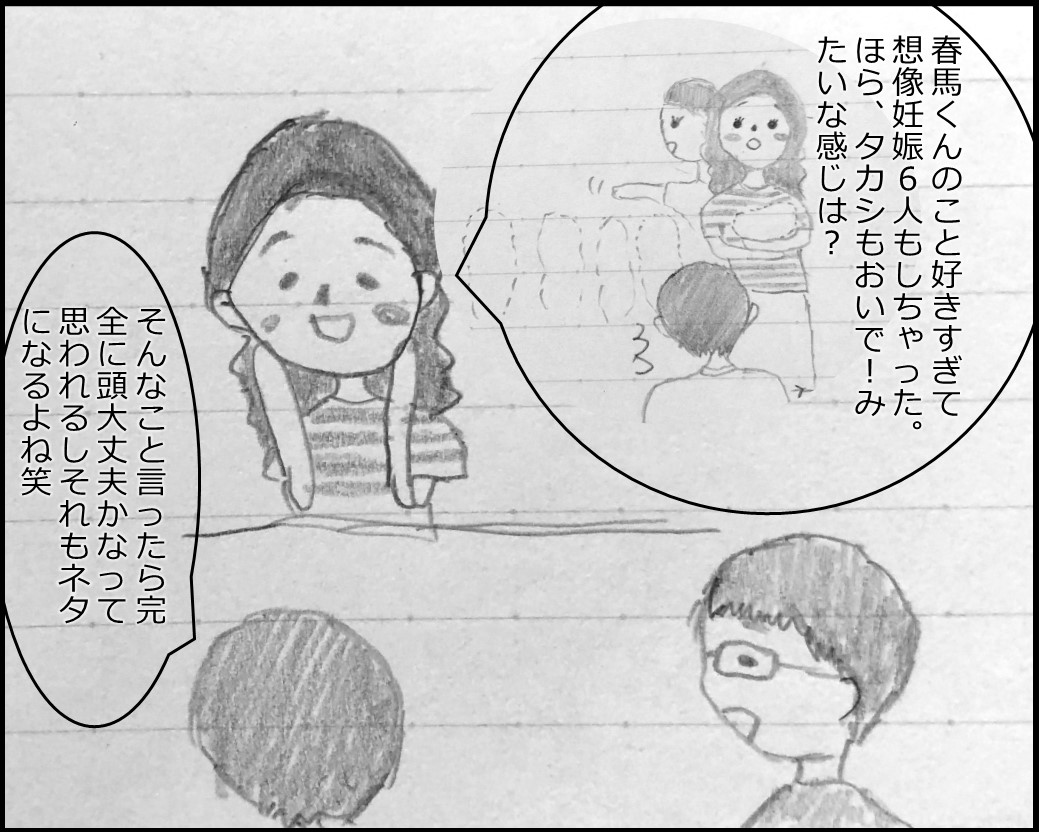 春馬くんのこと好きすぎて
想像妊娠6人もしちゃった。
ほら、タカシもおいで！み
たいな感じは？
そんなこと言ったら完
全に頭大丈夫かなって
思われるしそれもネタ
になるよね笑